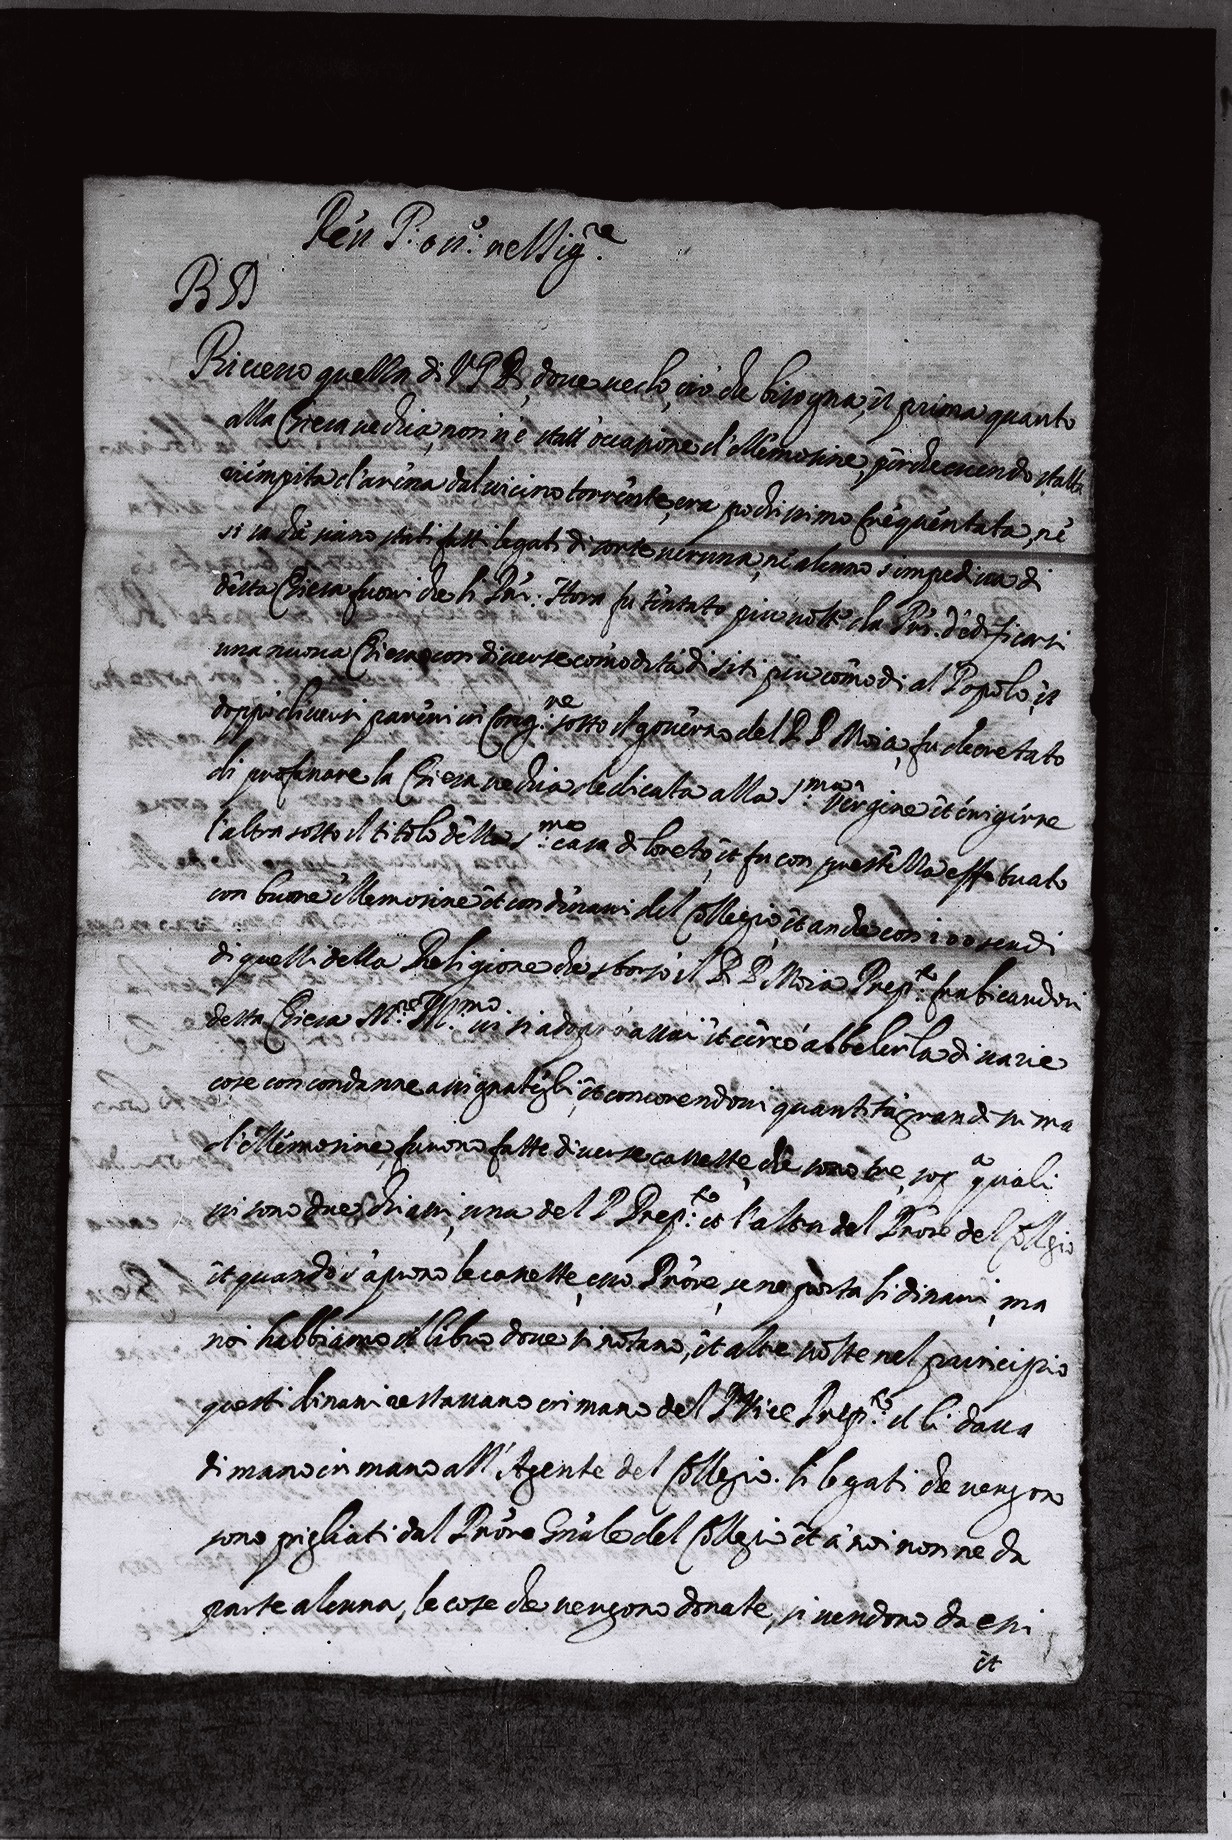 Rev P: oss.º: nel Sig.re
B D
Riceuo quella di V P R, doue uedo, ciò che bisogna, et prima quanto
alla Chiesa uechia, non ui è stat' occasione d'ellemosine, perche essendo stata
riempita d'arena dal uicino torrente, era pochissimo frequentata, nè
si sa che siano stati fatti legati di sorte ueruna, ne alcuno s'impediua di
detta Chiesa fuori che li Pri: Hora fu tentato piu uolte da Pri. d'edificarsi
una nuoua Chiesa con diuerse comodità di siti piu comodi al Popolo, et
doppo diuersi pareri in Cong.ne sotto il gouerno del P P Moia, fu decretato
di profanare la Chiesa uechia dedicata alla S.ma Vergine et erigerne
l'altra sotto il titolo della S.ma casa di Loreto, et fu con prestezza effetuato
con buone ellemosine et con denari del Collegio, et anche con 100 scudi
di quelli della Religione che sborsò il P P Moia Prep.to fabricandosi
detta Chiesa M.re Ill.mo ui si adoprò assai et cercò abbelirla di uarie
cose con condanne assignategli, et concorendoui quantità grandissima
d'ellemosine, furono fatte diuerse cassette, che sono tre, sop.a quali
ui sono due chiaui, una del P Prep.to et l'altra del Priore del Collegio
et quando s'aprono le cassette, esso Priore, se ne porta li dinari, ma
noi habbiamo il libro doue si notano, et altre uolte nel principio
questi dinari restauano in mano del P Vice Prep.to: et li daua
di mano in mano all' Agente del Collegio. li legati che uengono
sono pigliati dal Priore Gnale del Collegio et à noi non ne da
parte alcuna, le cose che uengono donate, si uendono da essi
et